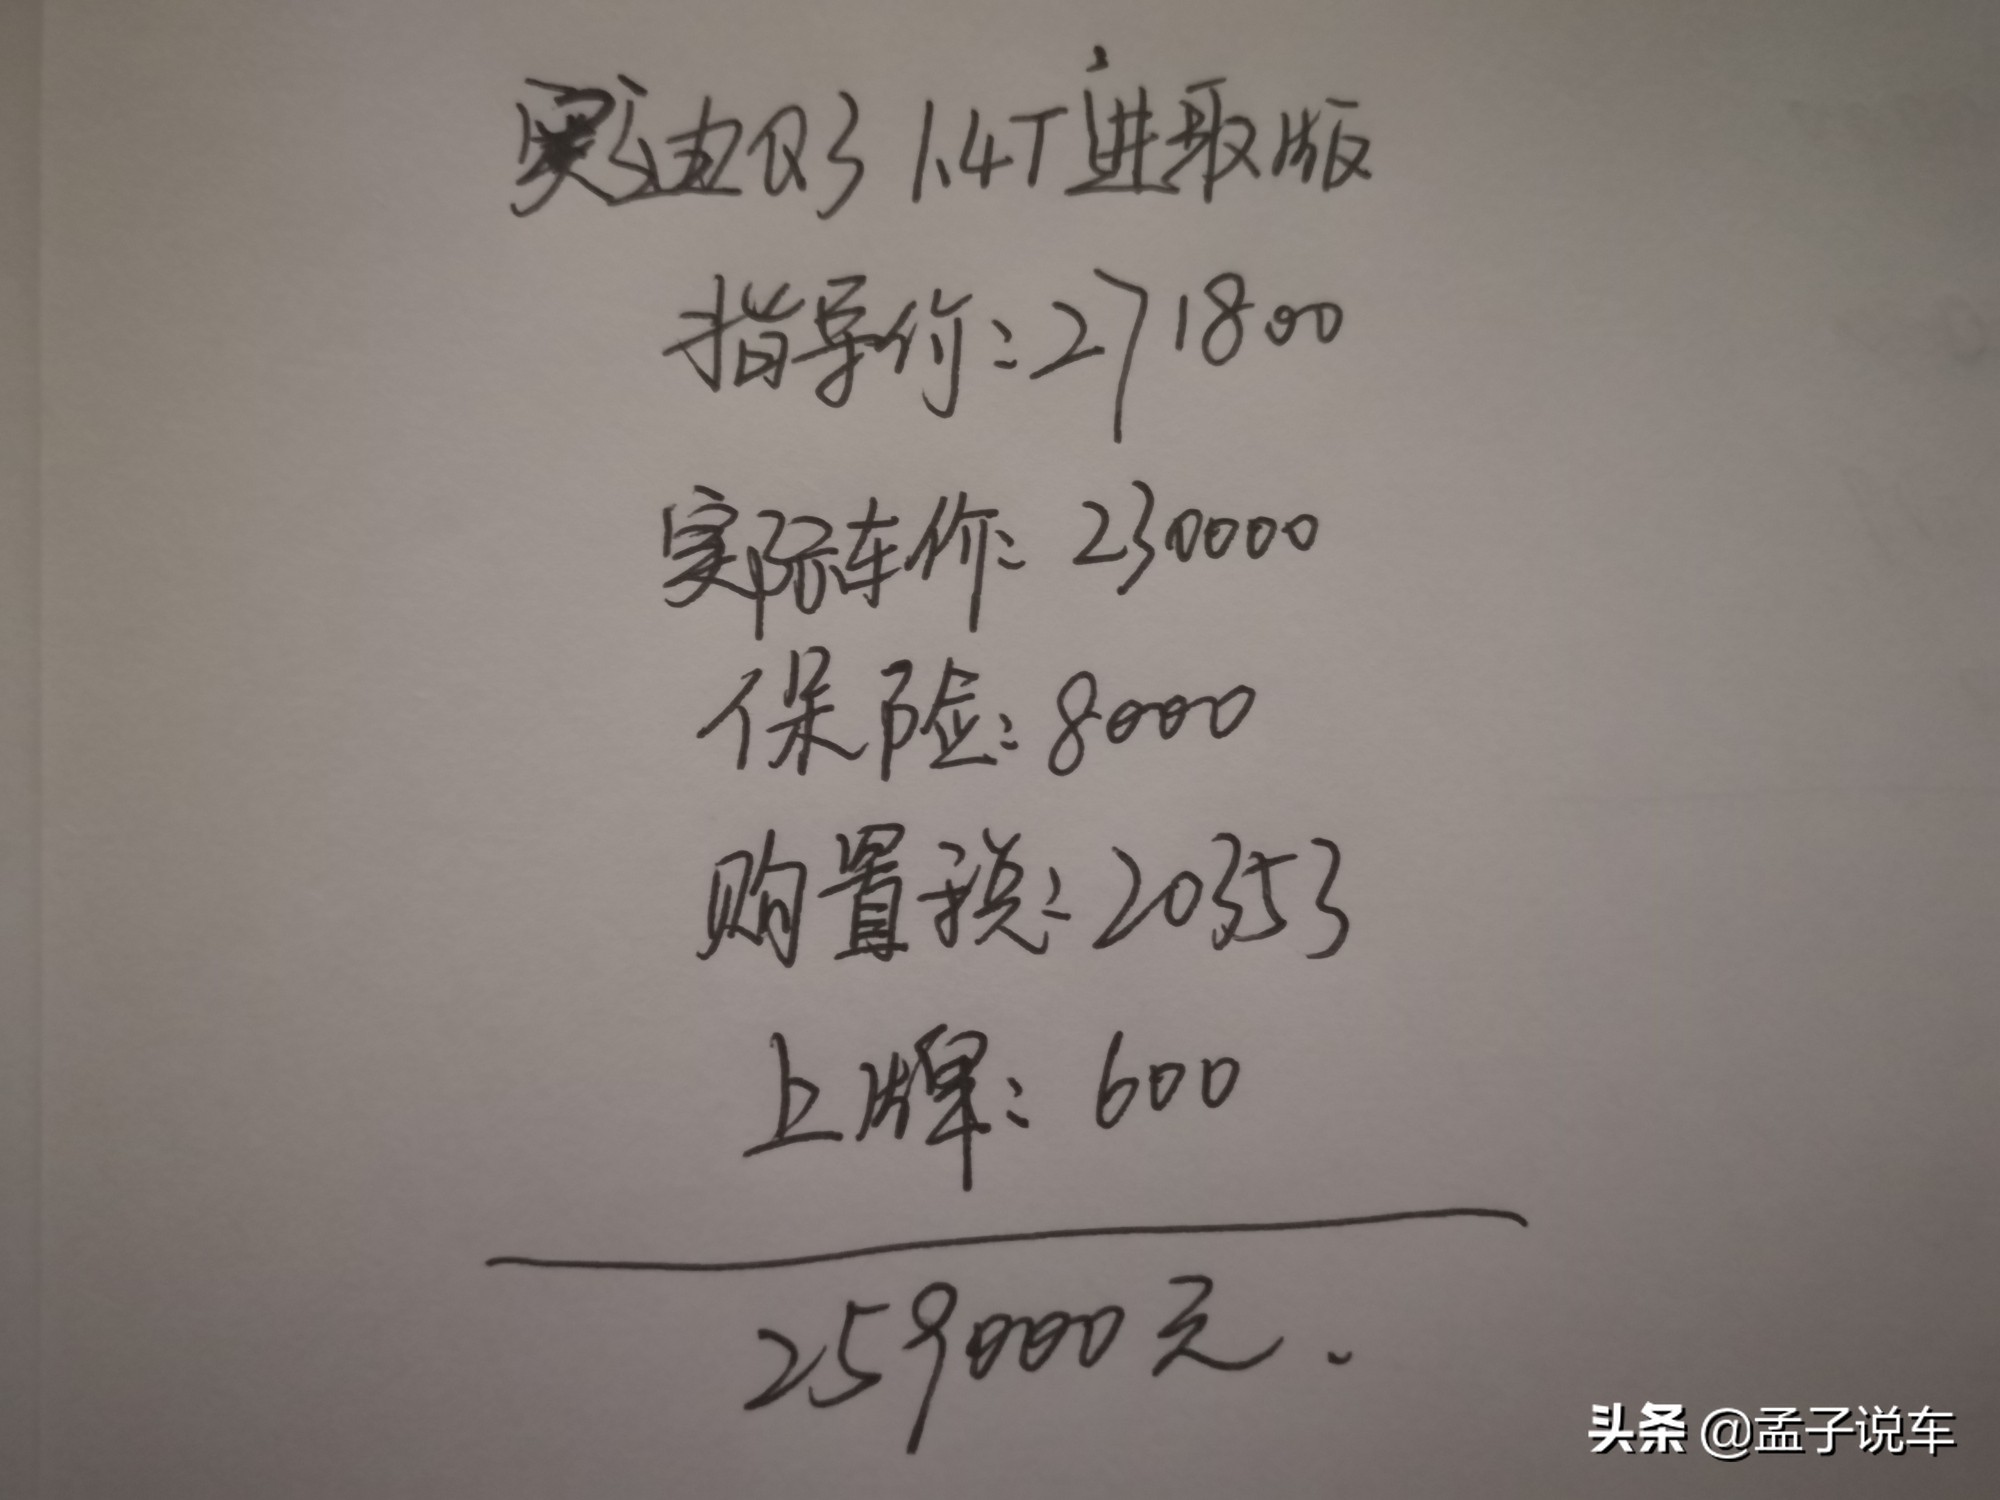 奥迪Q3 1.4T进取版
指导价:271800
实际车价:230000
保险:8000
购置税:20353
上牌:600
259000元.
头条 @孟子说车